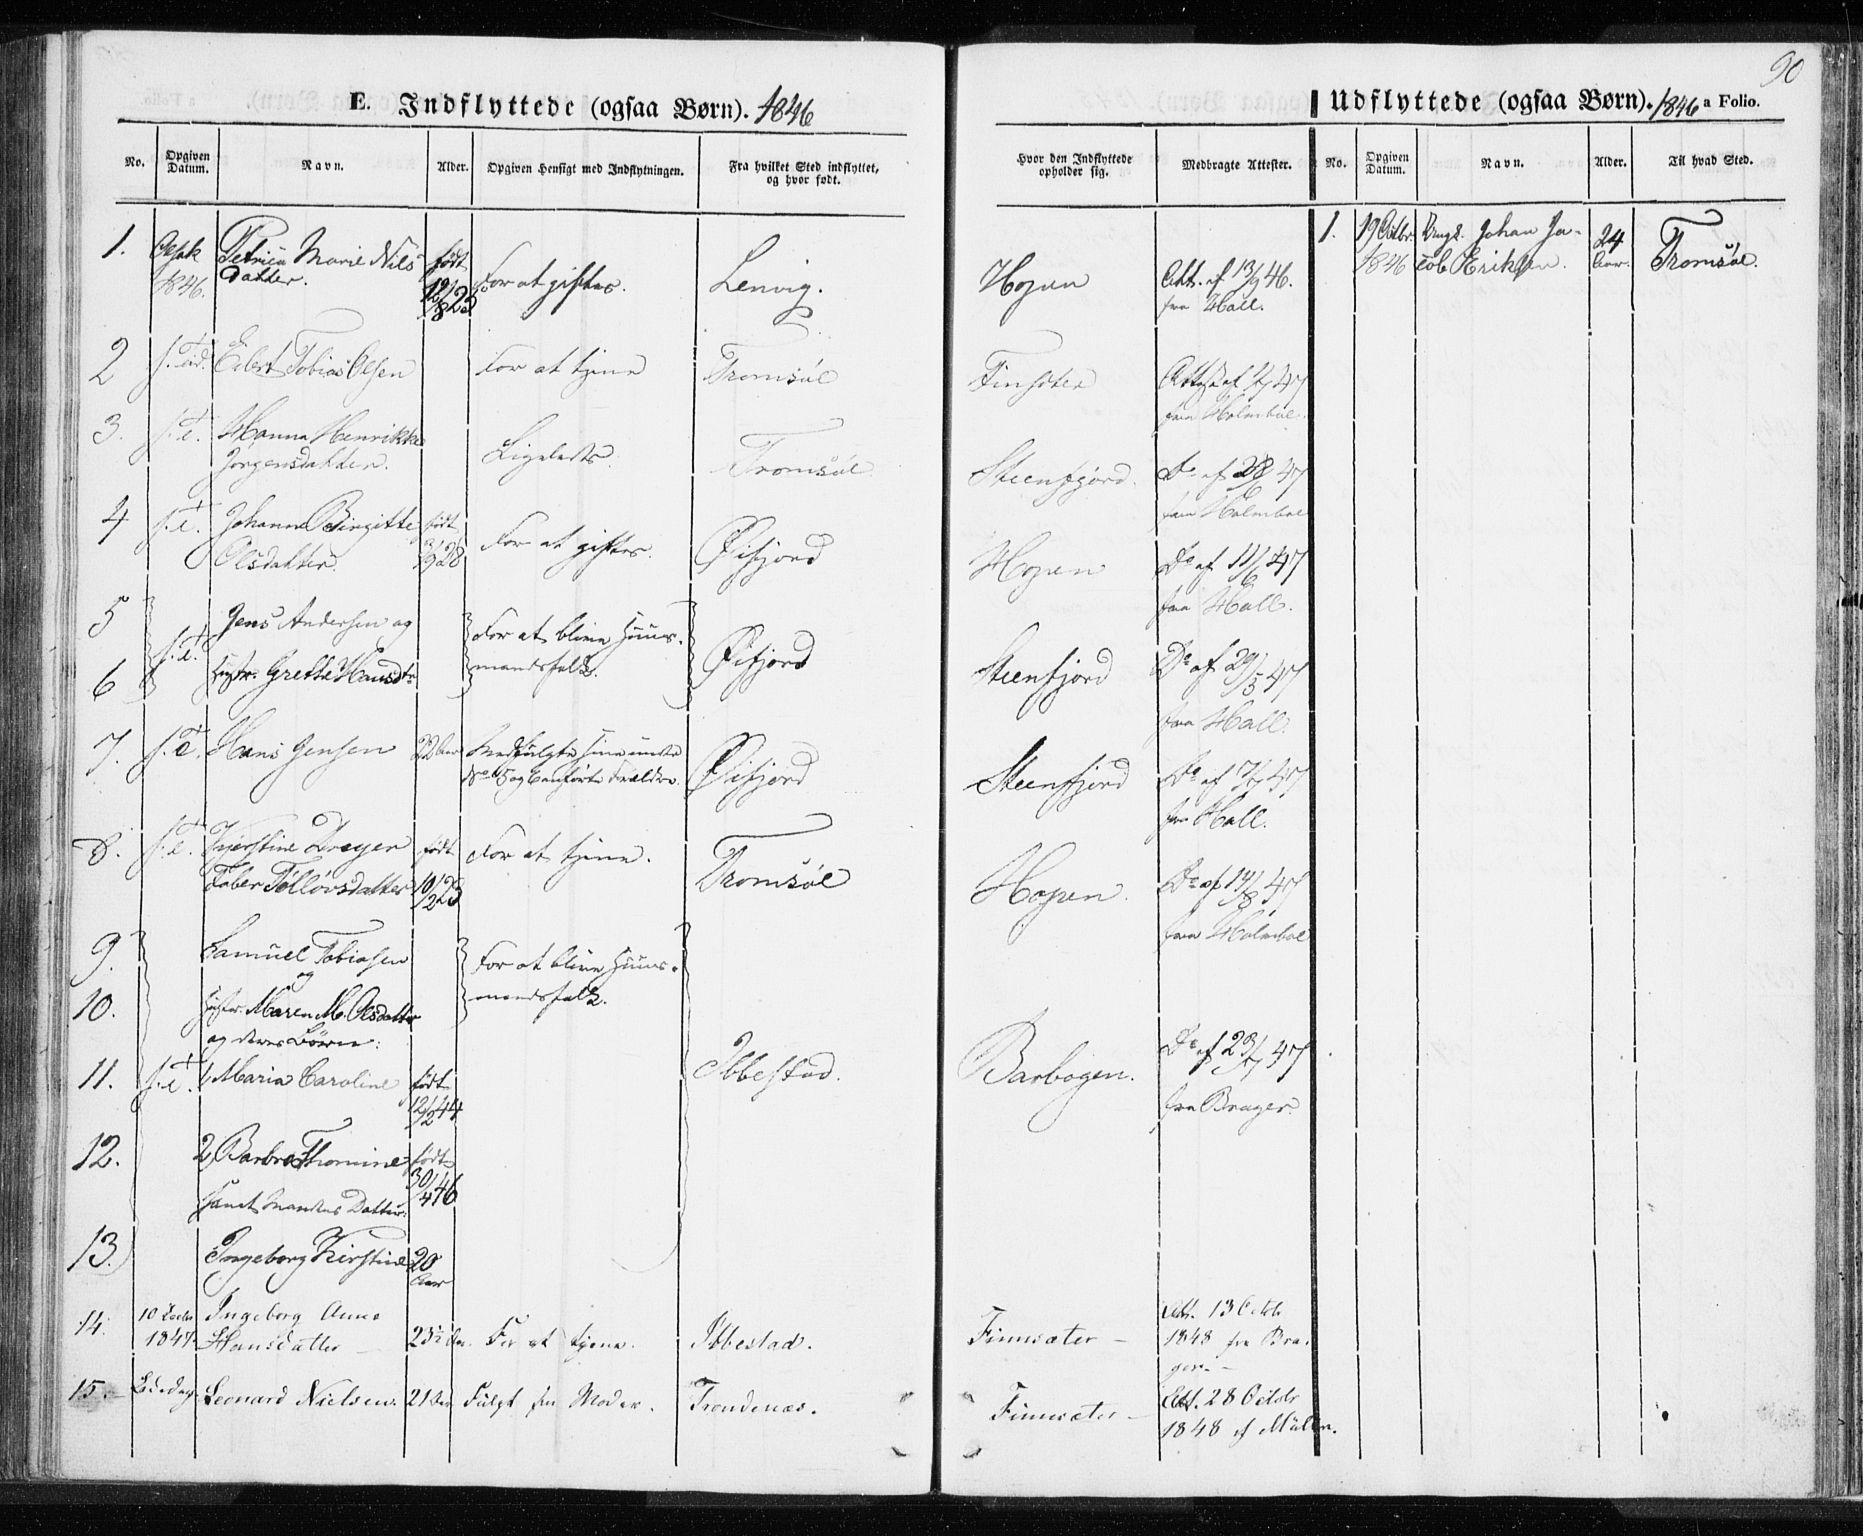 90
E. Indflyttede (ogsaa Børn). 1846
No.
Opgiven Datum.
Navn.
Alder.
Opgiven Hensigt med Indflytningen.
Fra hvilket Sted indflyttet, og hvor født.
Hvor den Indflyttede opholder sig.
Medbragte Attester.
1. 1846. Petrica Marie Nils datter. født 12/8 25 For at giftes. Lenvig. Hopen Att. af 13/9 46. fra Hall.
2 s. Tid. Edert Tobias Olsen For at tjene Tromsøe Finsæter Attest af 47 fra Holmboe.
3. s. T. Hanna Henrikke Jørgensdatter. Ligeledes. Tromsøe Steenfjord. Do af 47 fra Holmboe
4 s. T. Johanna Birgitte Olsdatter. født 3/9 28 For at giftes. Øifjord Hopen Do af 11/6 47 fra Hall.
5 Jens Andersen og
6 s. T. Hustr. Grethe Hansdtr For at blive Huus-
mandsfolk. Øifjord Steenfjord Do af 29/5 47 fra Hall.
7. s. T. Hans Jensen 22 Aar Medfulgte sine under No 5 og 6 anførte Forældre. Øifjord Steenfjord Do af 47 fra Hall.
8. s. T. Kjerstine Dreyer Faber Tølløvsdatter født 10/2 23 For at tjene. Tromsøe Hopen. Do af 14/8 47 fra Holmboe
9. Samuel Tobiasen
og
10. Hustr. Maren M. Olsdatter For at blive Huus-
mandsfolk.
og deres Børn:
11. s. T. 1, Maria Caroline født 12/2 44 Ibbestad. Barbogen. Do af 23/7 47 fra Brager.
12. 2, Barbro Thomine født 30/4 46
samt Mandens Datter:
13. Ingeborg Kirstine 20 Aar
14. 10 1847 Ingeborg Anne Hansdatter 23½ Aar. For at tjene. Ibbestad. Finnsæter – Att. 13 Octobr 1848 fra Bra-
ger. –
15. Leonard Nielsen. 21 Aar Fulgt sin Moder. Trondenæs. Finnsæter – Att. 28 Octobr 1848 af Müller.
Udflyttede (ogsaa Børn). 1846 a Folio.
No.
Opgiven Datum.
Navn.
Alder.
Til hvad Sted.
1. 19 Octbr. 1846 Ungk. Johan Ja-
cob Eriksen. 24 Aar. Tromsøe.